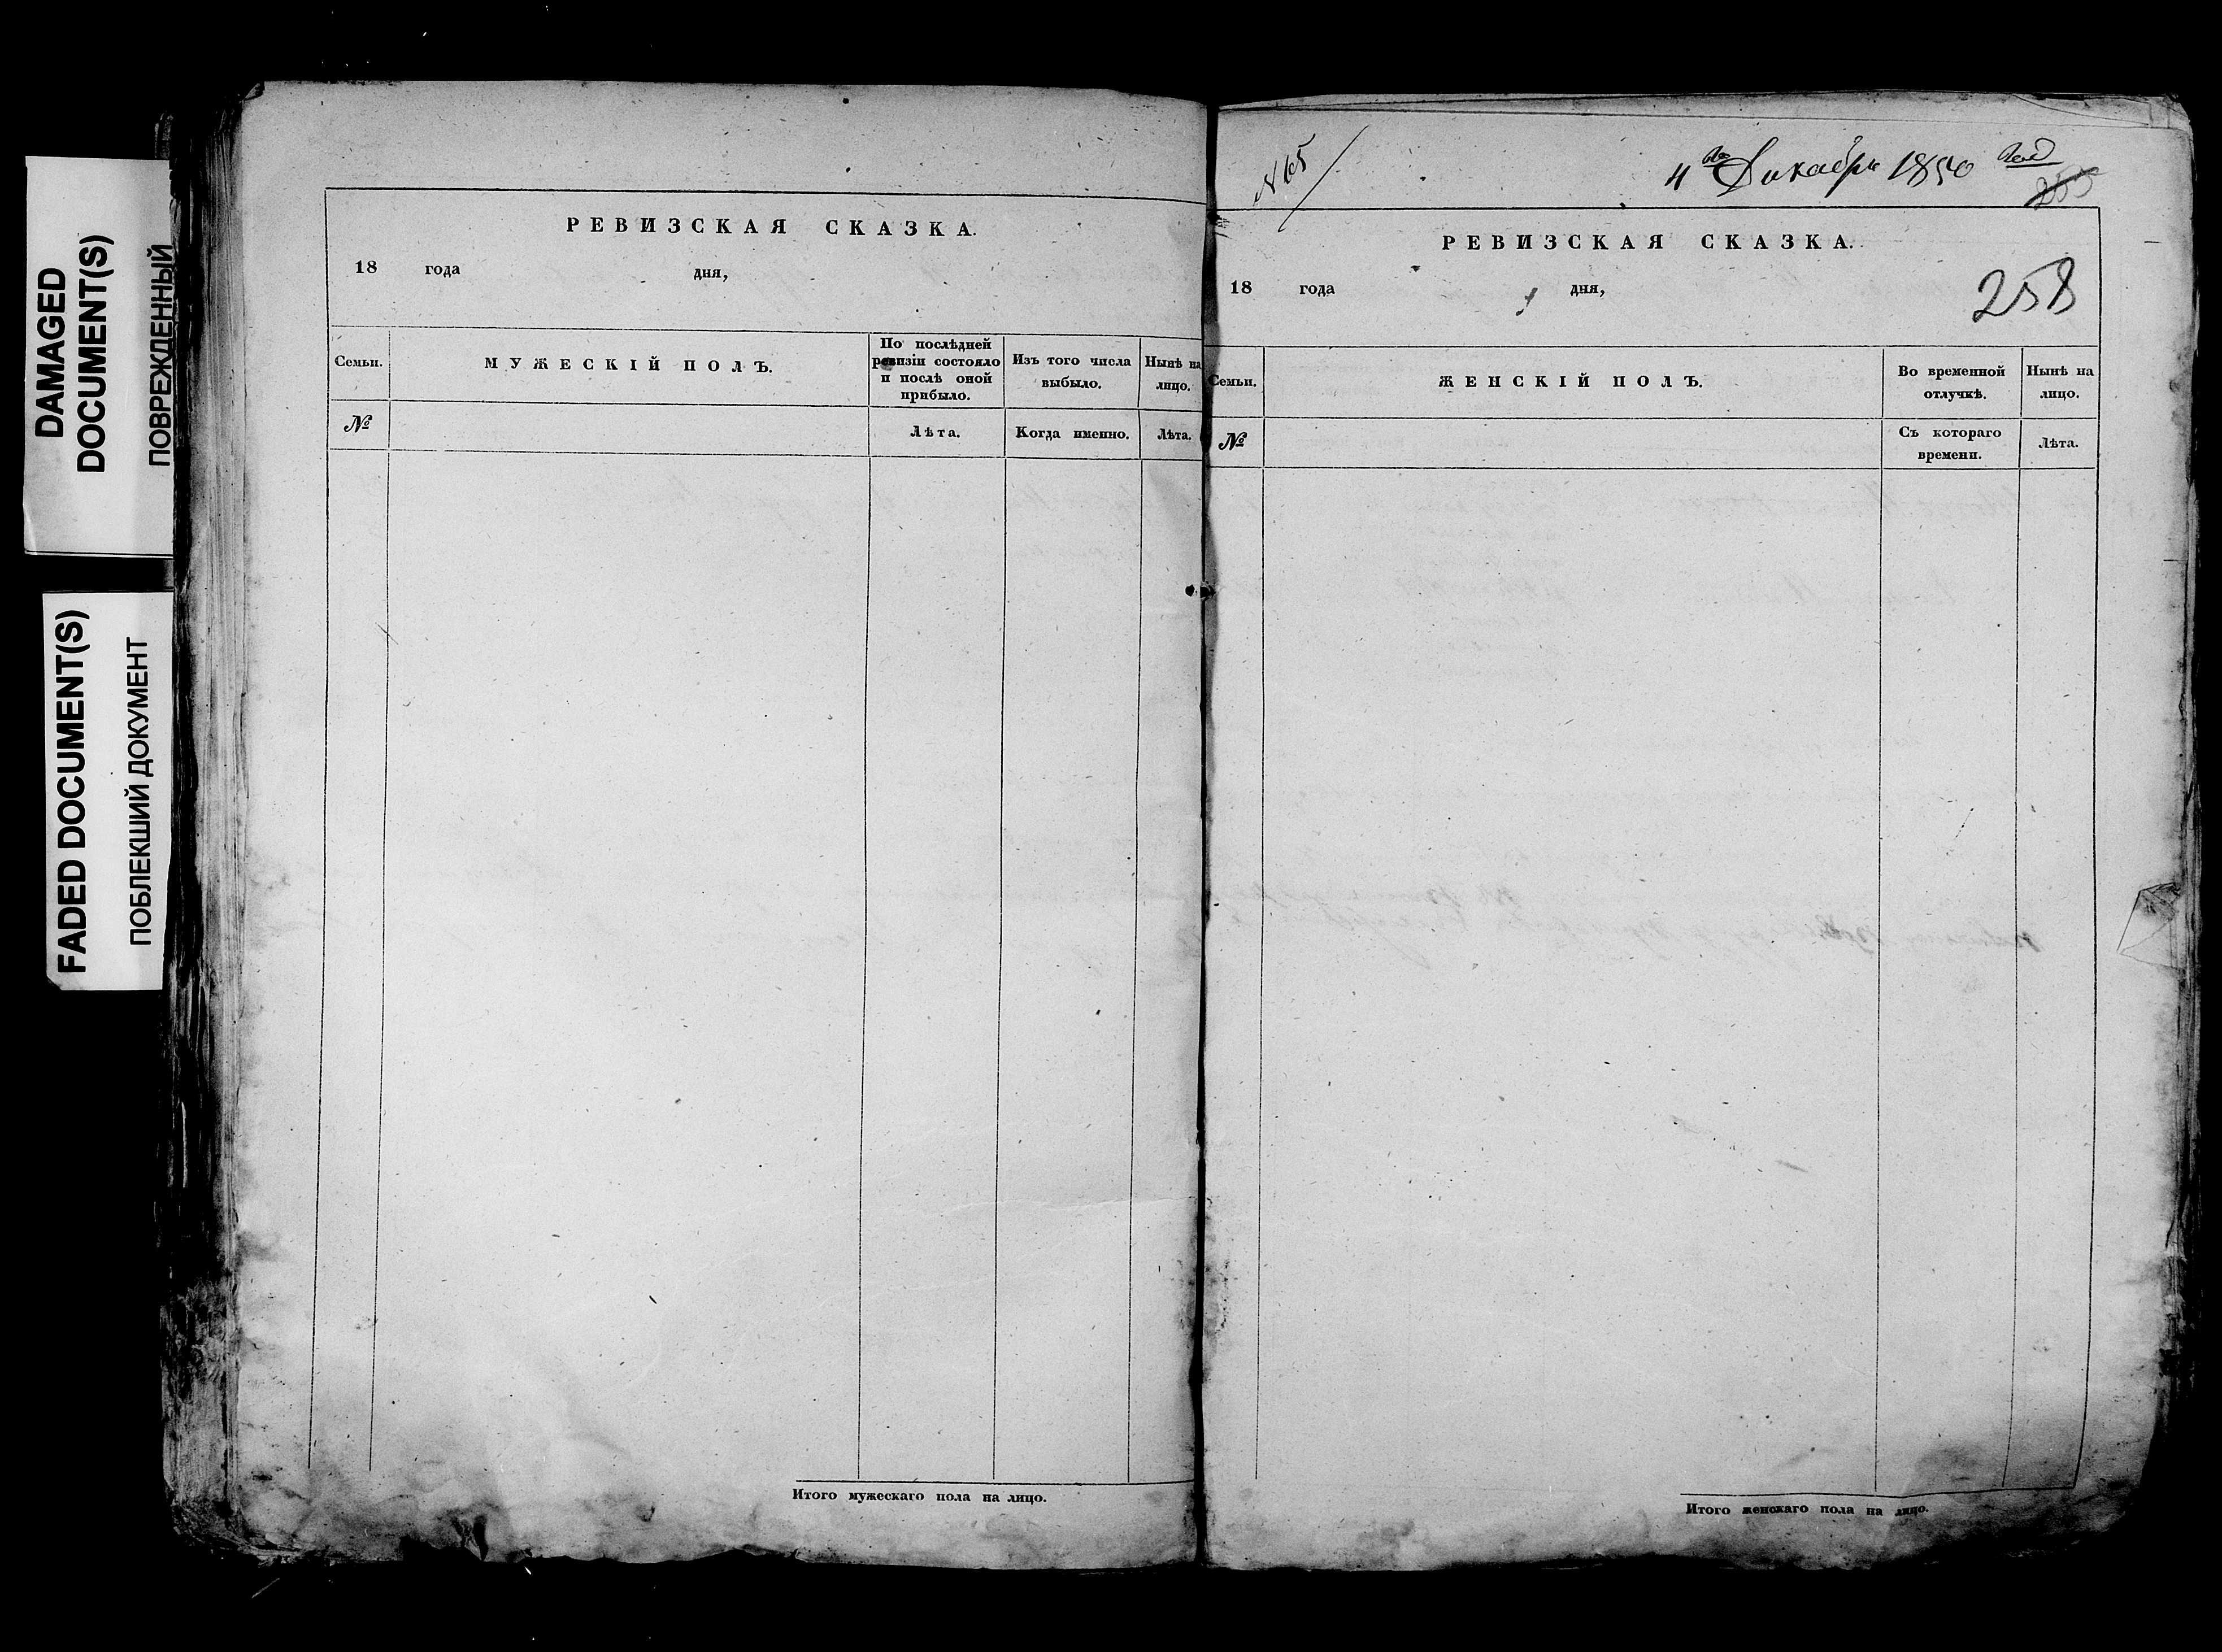 DAMAGED
DOCUMENT(S)
ПОВРЕЖДЕННЫЙ
FADED DOCUMENT(S)
ПОБЛЕКШИЙ ДОКУМЕНТ
РЕВИЗСКАЯ СКАЗКА.
18 года дня,
Семьи.
МУЖЕСКІЙ ПОЛЪ.
По послѣдней
ревизіи состояло
и послѣ оной
прибыло.
Изъ того числа
выбыло.
Нынѣ на
лицо.
№
Лѣта.
Когда именно.
Лѣта.
Итого мужескаго пола на лицо.
N 65
4го Декабря 1850 года
255
РЕВИЗСКАЯ СКАЗКА.
18 года дня,
258
Семьи.
ЖЕНСКІЙ ПОЛЪ.
Во временной
отлучкѣ.
Нынѣ на
лицо.
№
Съ котораго
времени.
Лѣта.
Итого женскаго пола на лицо.